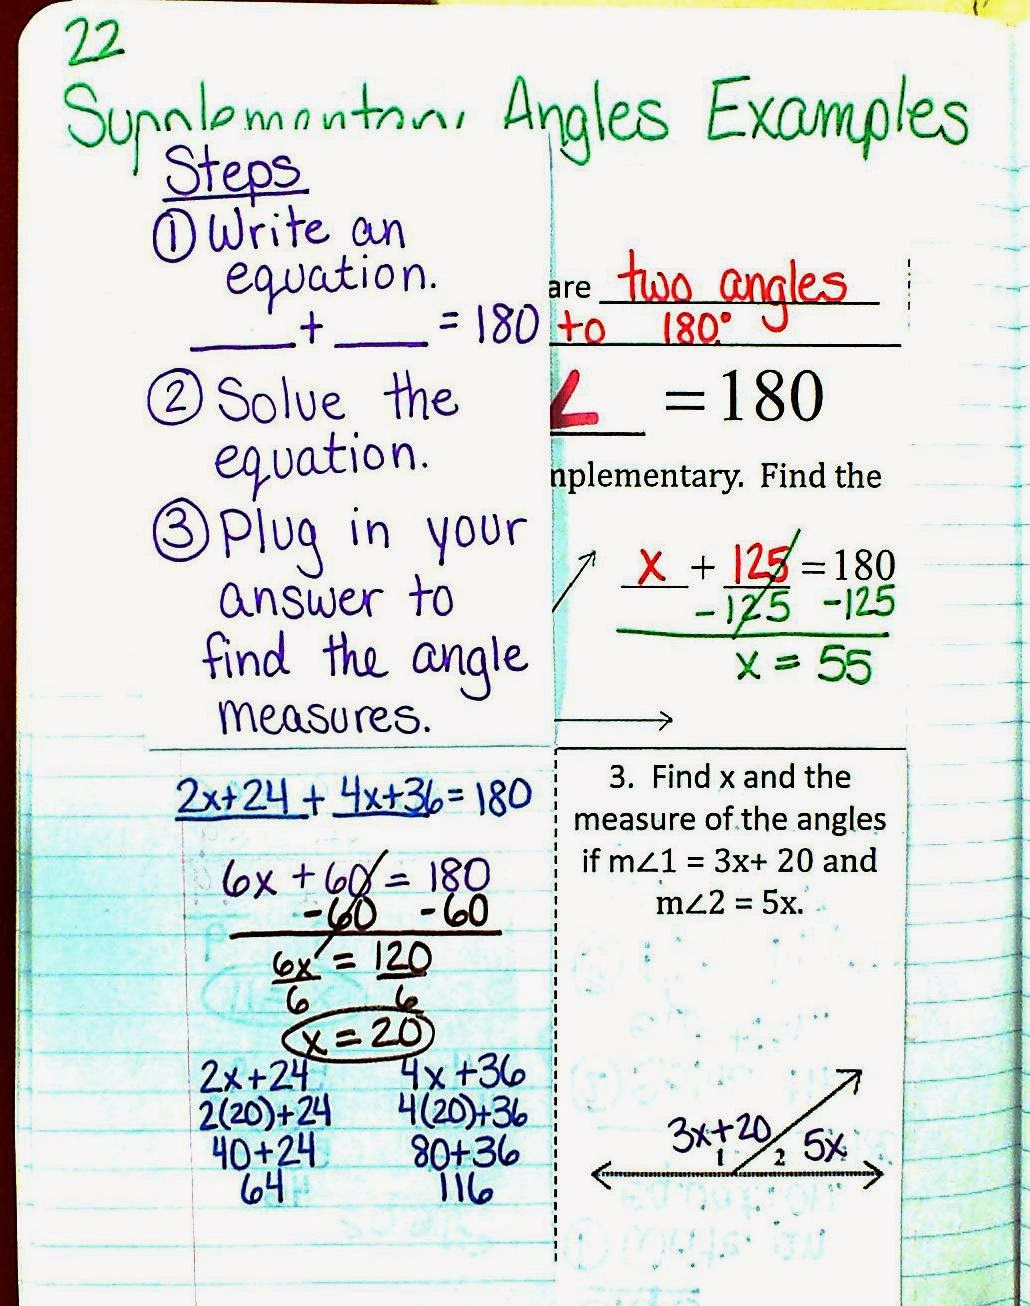 22
Supplementary Angles Examples
Steps
① Write an
equation.
____ + ____ = 180
② Solve the
equation.
③ Plug in your
answer to
find the angle
measures.
are two angles
to 180°
∠ = 180
mplementary. Find the
x + 125 = 180
-125 -125
x = 55
2x+24 + 4x+36 = 180
6x + 60 = 180
-60 -60
6x = 120
6 6
x = 20
2x+24 4x+36
2(20)+24 4(20)+36
40+24 80+36
64 116
3. Find x and the
measure of the angles
if m∠1 = 3x+ 20 and
m∠2 = 5x.
3x+20 5x
1 2